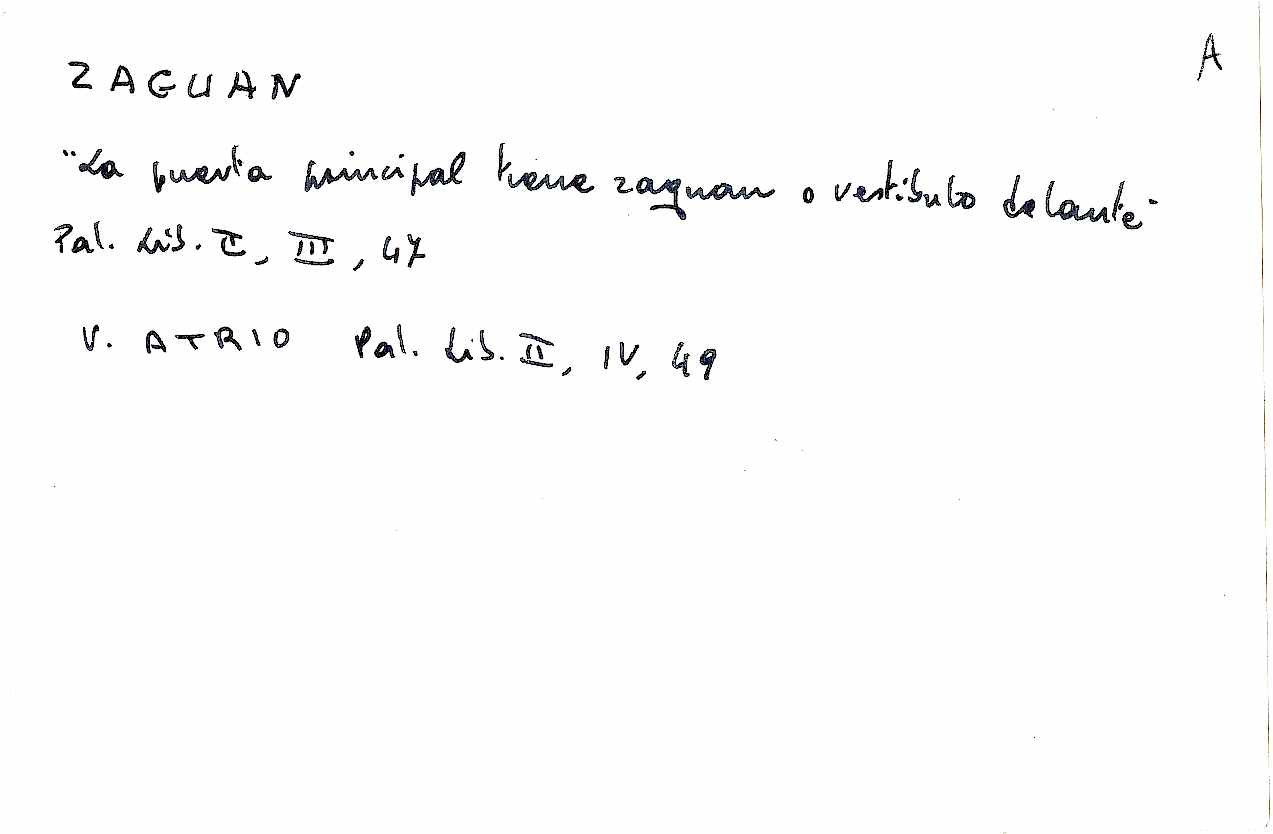 A
ZAGUAN
"La puerta principal tiene zaguan o vestibulo delante"
Pal. Lib. II, III, 47
V. ATRIO Pal. Lib. II, IV, 49